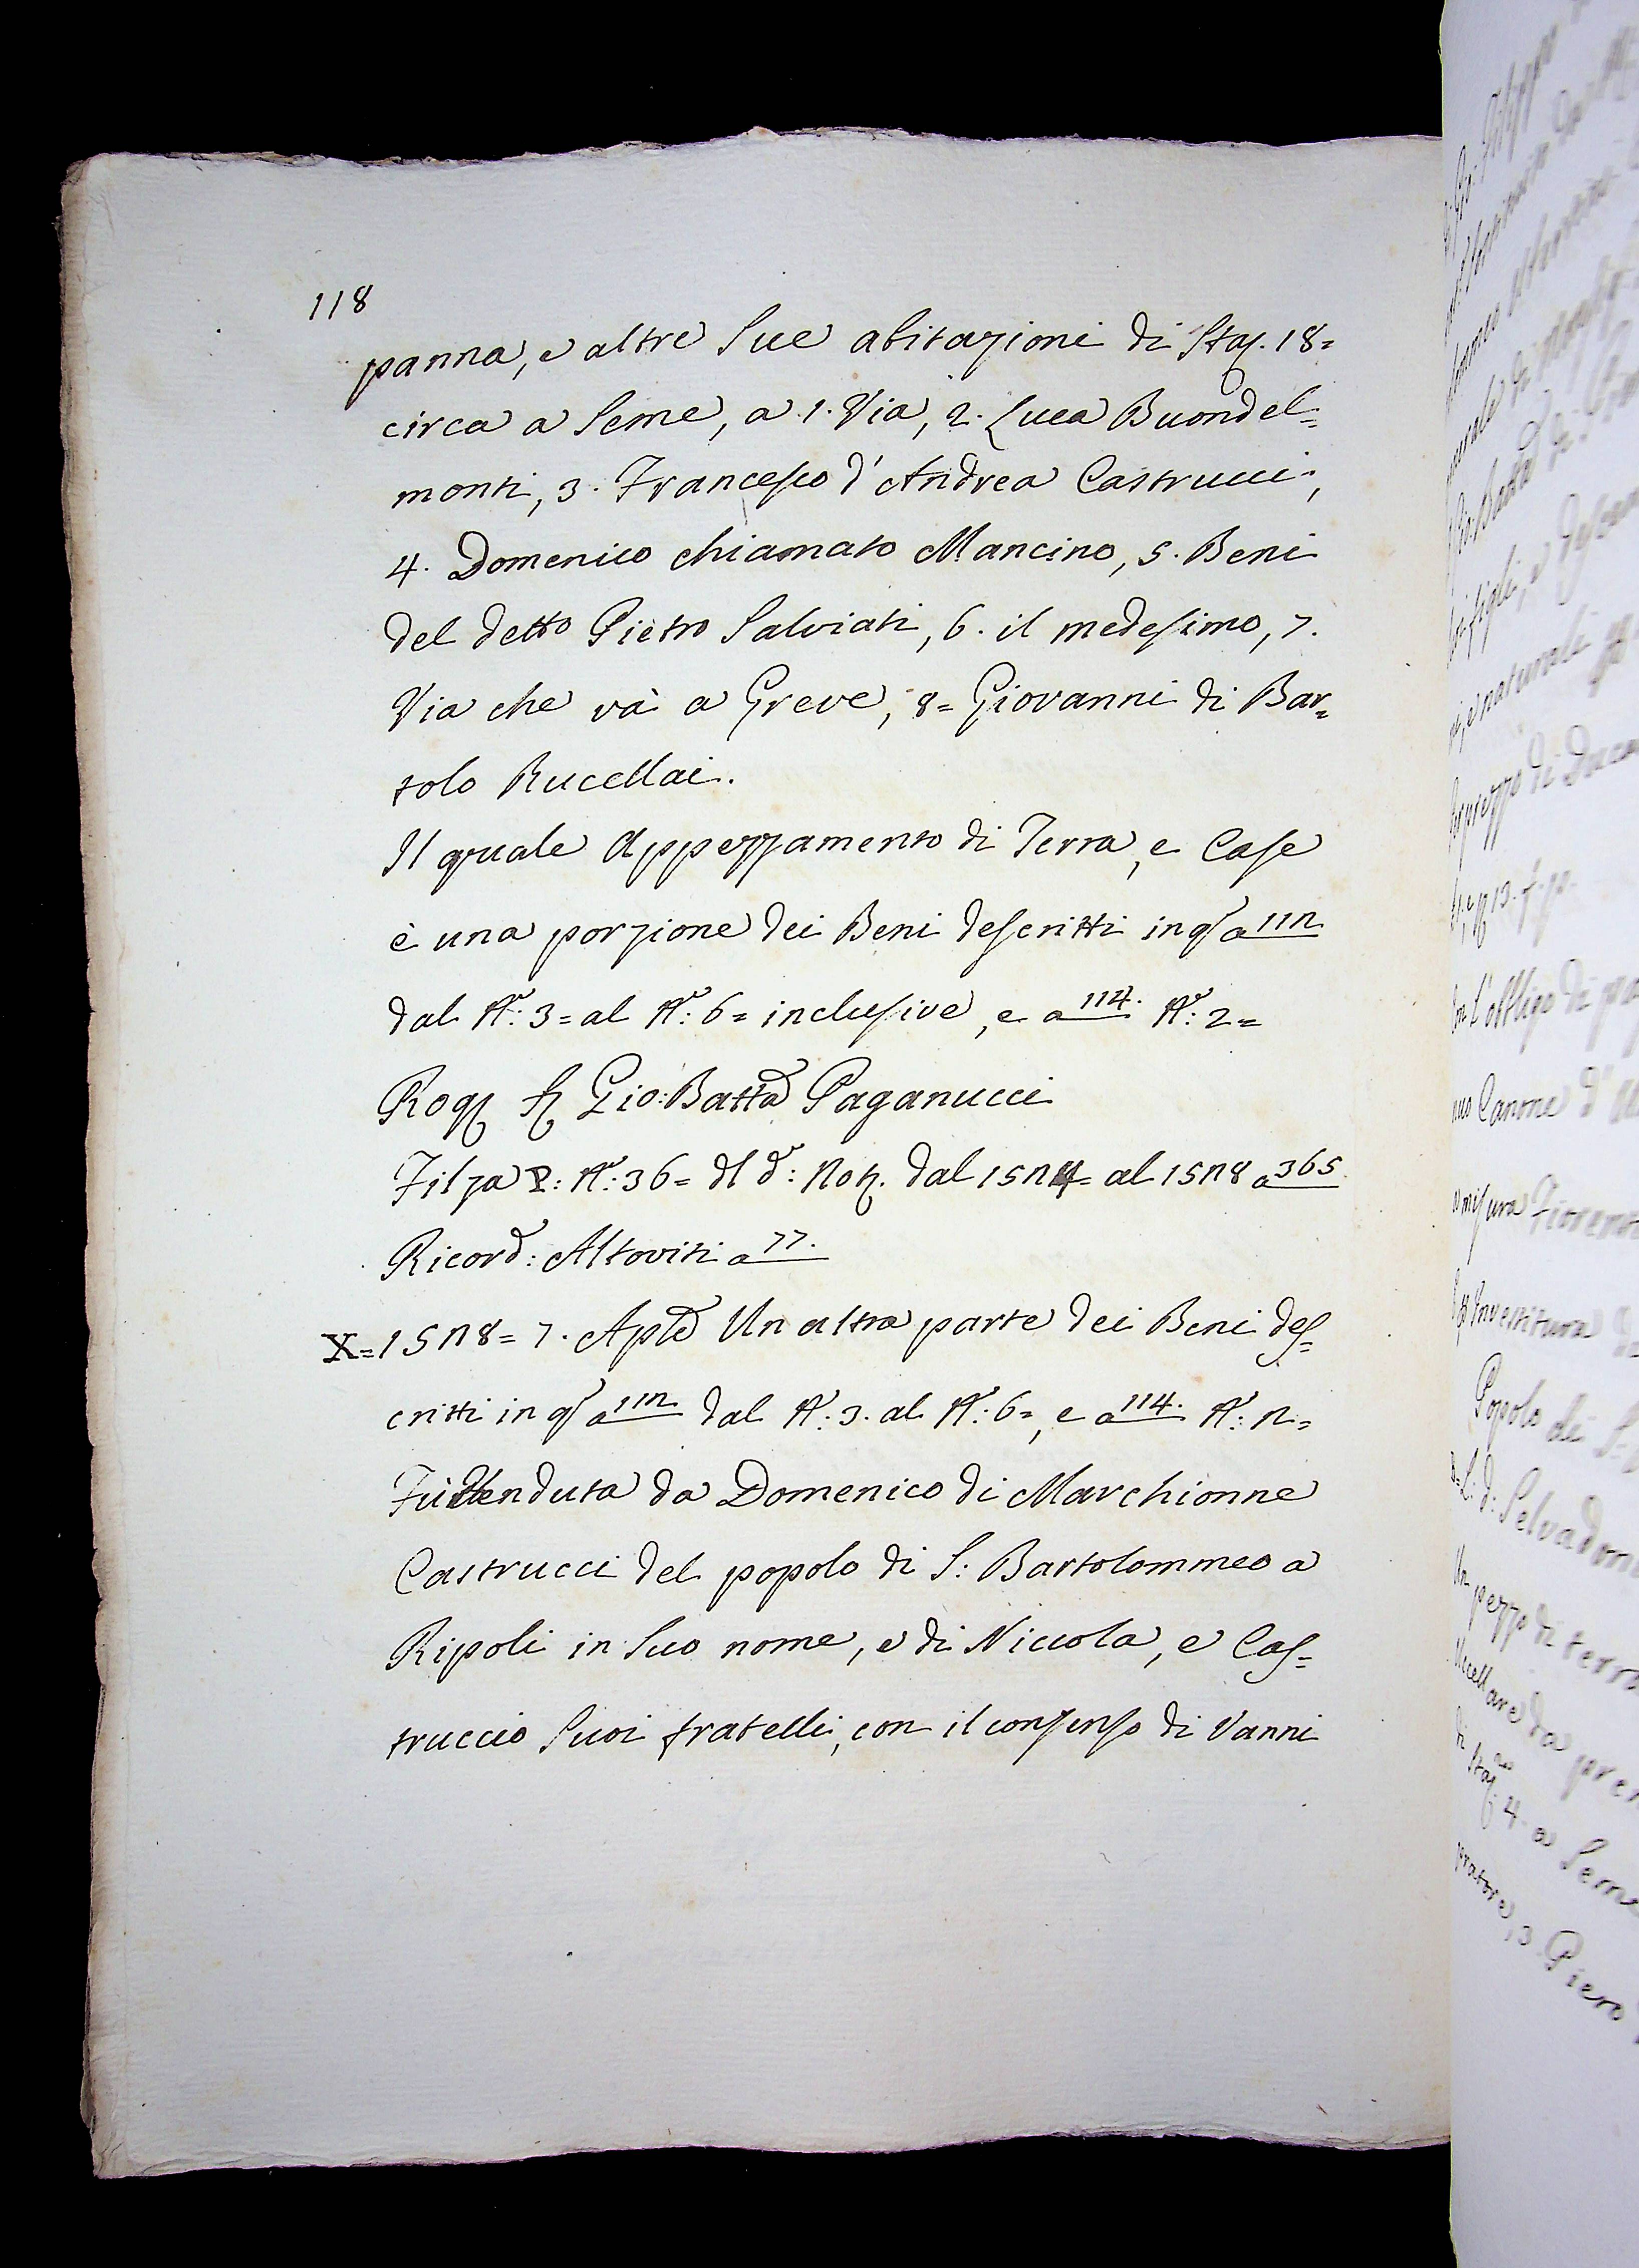 118
panna, e altre Sue abitazioni di Staj. 18=
circa a Seme, a 1. Via, 2. Luca Buondel=
monti, 3. Francesco d'Andrea Castrucci,
4. Domenico chiamato Mancino, 5. Beni
del detto Pietro Salviati, 6. il medesimo, 7.
Via che và a Greve, 8= Giovanni di Bar=
tolo Rucellai.
Il quale Appezzamento di Terra, e Case
è una porzione dei Beni descritti in qs a 112
dal N.º: 3= al N.º: 6= inclusive, e a 114. N.º: 2=
Rog. S. Gio: Batta Paganucci
Filza P: N.º: 36= dl d.º: Not. dal 1524= al 1528 a 365
Ricord: Altoviti a 77.
X= 1528= 7. Aple Un altra parte dei Beni des=
critti in qs a 112 dal N.º: 3. al N.º: 6=, e a 114. N.º: 2=
Fù Venduta da Domenico di Marchionne
Castrucci del popolo di S: Bartolommeo a
Ripoli in Suo nome, e di Niccola, e Cas=
truccio Suoi fratelli, con il consenso di Vanni
Popolo di S:
Selvadon
Un pezzo di terra
Uccellare da pren
di Staj. 4. a Seme
pratore, 3. Piero